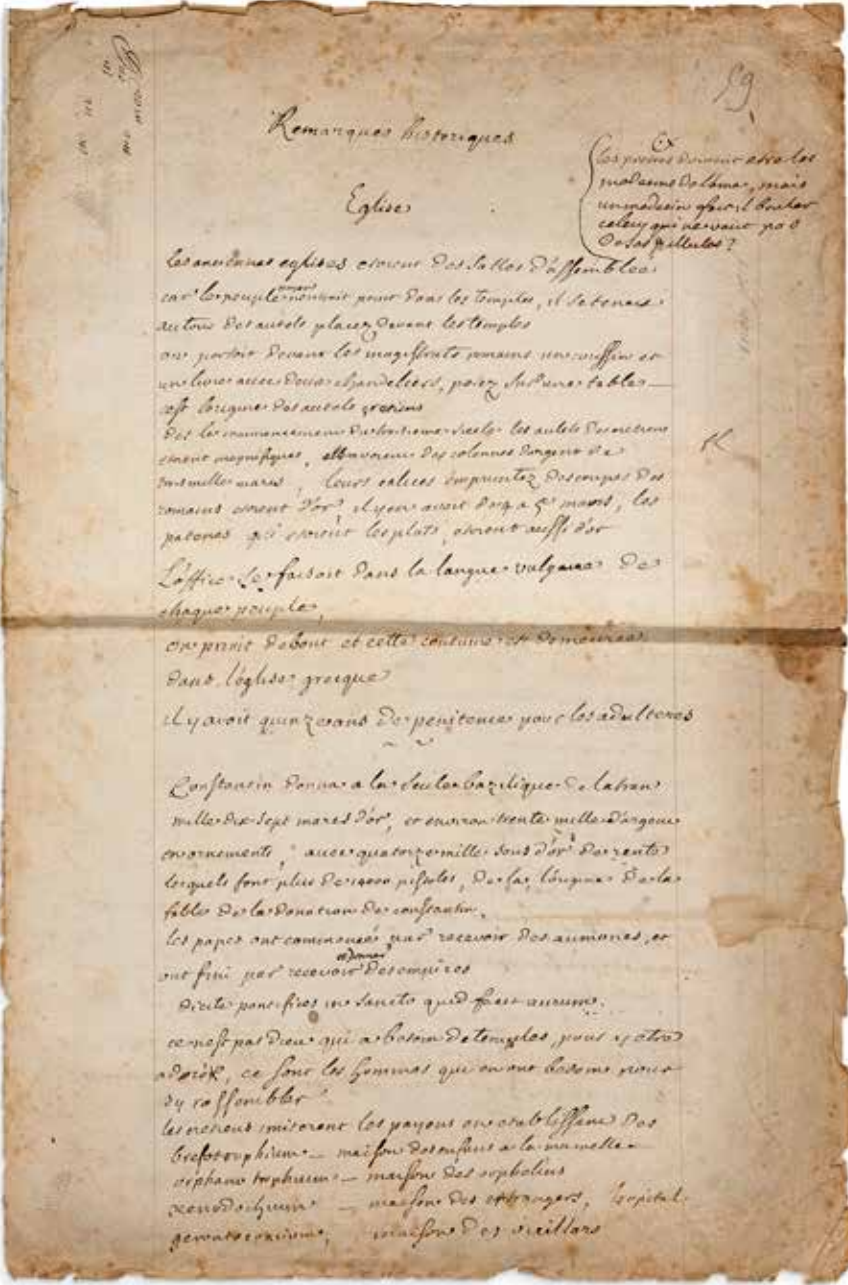 59
Remarques historiques
Eglise
les pretres doivent etre les
medecins de l'ame, mais
un medecin
celuy qui ne veut pas
de ses pillules?
les anciennes eglises etoient des salles d'assemblee
car le peuple romain n'entroit point dans les temples, il se tenoit
autour des autels placez devant les temples
on portoit devant les magistrats romains un coussin et
un livre avec deux chandeliers, posez sur une table
c'est l'origine des autels cretiens
des le commencement du troisieme siecle les autels des cretiens
etoient magnifiques, avoient des colonnes d'argent de
trois mille marcs, leurs calices empruntez des coupes des
romains etoient d'or, il y en avoit de 4 a 5 marcs, les
patenes qui etoient les plats, etoient aussi d'or
L'office se faisoit dans la langue vulgaire de
chaque peuple,
on prioit debout et cette coutume est demeurée
dans l'eglise grecque
il y avoit quinze ans de penitence pour les adulteres
Constantin donna a la seule bazilique de latran
mille dix sept marcs d'or, et environ trente mille d'argent
en ornements, avec quatorze mille sous d'or de rente
lesquels font plus de 14000 pistoles, de la l'origine de la
fable de la donation de constantin.
les papes ont commencé par recevoir des aumones, et
ont fini par recevoir et donner des empires
dicite pontifices in sancto quid facit aurum.
ce n'est pas dieu qui a besoin de temples, pour y etre
adoré, ce sont les hommes qui en ont besoin pour
s'y rassembler
les cretiens imiterent les payens en etablissant des
brefotrophium — maison des enfans a la mamelle
orphanotrophium — maison des orphelins
xenodochium — maison des etrangers, hopital
gerontocomium, maison des vieillars